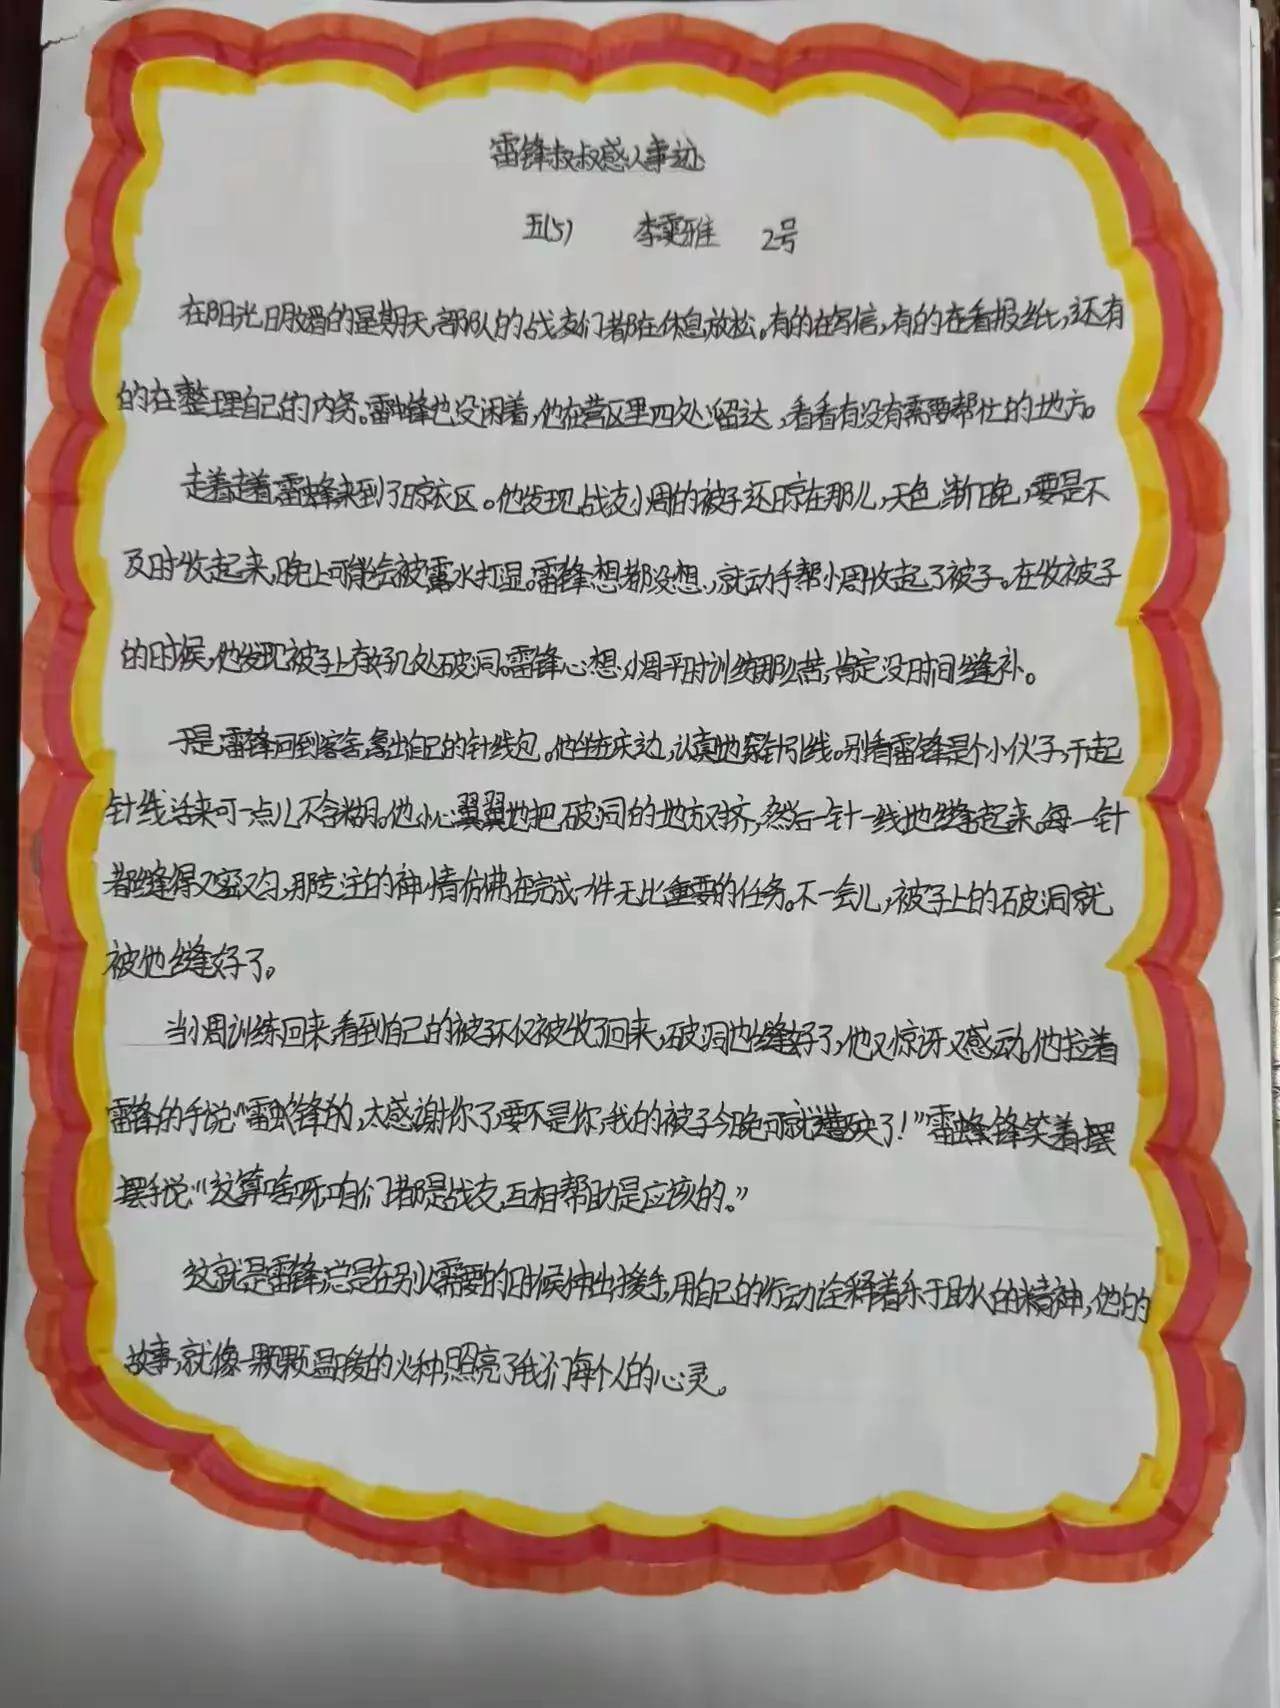 雷锋叔叔感人事迹
五(5) 李雯雅 2号
在阳光明媚的星期天,部队的战友们都在休息放松。有的在写信,有的在看报纸,还有
的在整理自己的内务。雷锋也没闲着,他在营区里四处溜达,看看有没有需要帮忙的地方。
走着走着,雷锋来到了晾衣区。他发现战友小周的被子还晾在那儿,天色渐晚,要是不
及时收起来,晚上可能会被露水打显。雷锋想都没想,就动手帮小周收起了被子。在收被子
的时候,他发现被子上有好几处破洞。雷锋心想,小周平时训练那么苦,肯定没时间缝补。
于是,雷锋回到宿舍,拿出自己的针线包。他坐在床边,认真地穿针引线。别看雷锋是个小伙子,干起
针线活来可一点儿不含糊。他小心翼翼地把破洞的地方对挤,然后一针一线地缝起来。每一针
都缝得又密又匀,那专注的神情仿佛在完成一件无比重要的任务。不一会儿,被子上的破洞就
被他缝好了。
当小周训练回来,看到自己的被子不仅被收了回来,破洞也缝好了,他又惊讶又感动。他拉着
雷锋的手说:“雷锋,太感谢你了,要不是你,我的被子今晚可就遭殃了!”雷锋笑着摆
摆手说:“这算啥呀,咱们都是战友,互相帮助是应该的。”
这就是雷锋,总是在别人需要的时候伸出援手,用自己的行动诠释着乐于助人的精神,他的
故事,就像一颗颗温暖的火种,照亮了我们每个人的心灵。